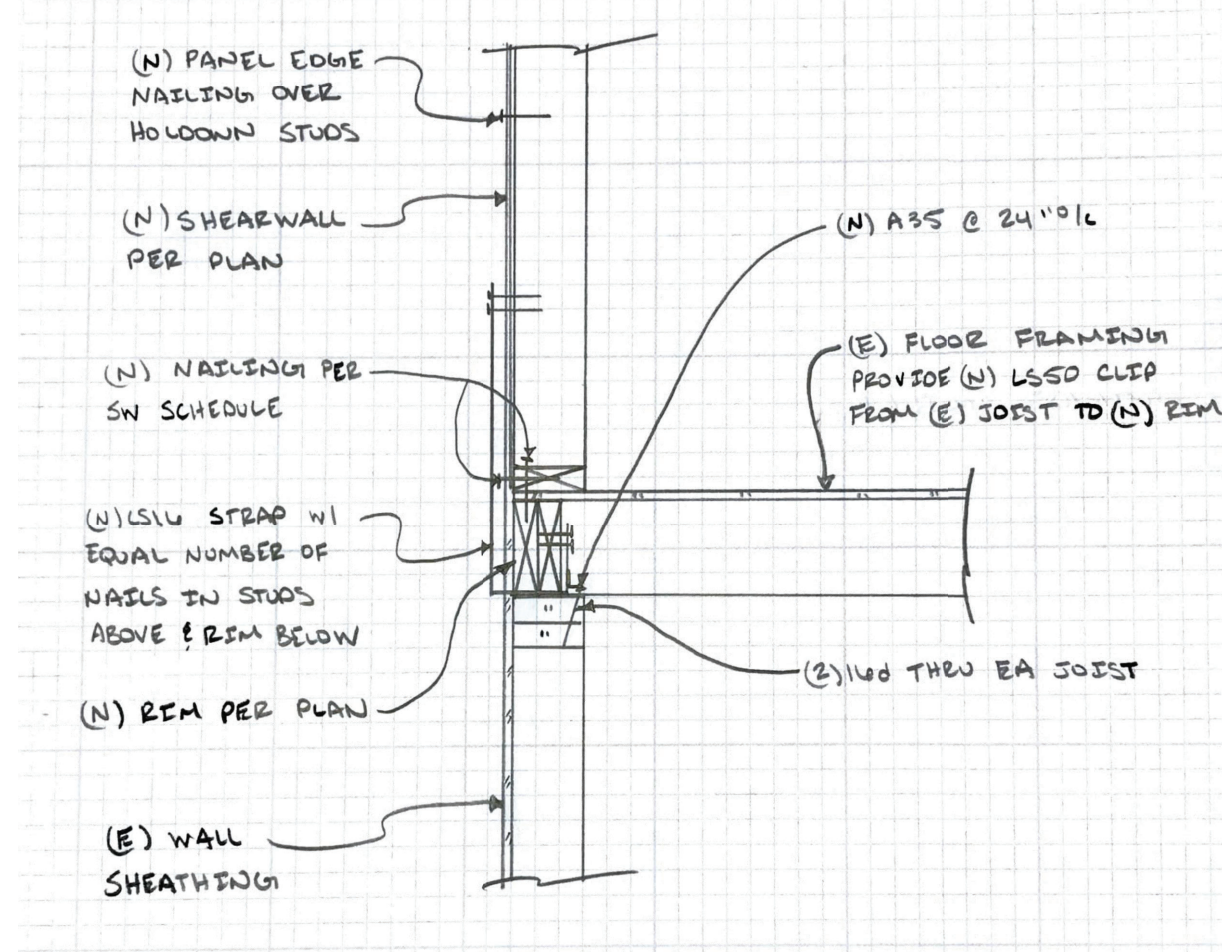 (N) PANEL EDGE
NAILING OVER
HOLDOWN STUDS
(N) SHEARWALL
PER PLAN
(N) NAILING PER
SW SCHEDULE
(N) CS16 STRAP W/
EQUAL NUMBER OF
NAILS IN STUDS
ABOVE & RIM BELOW
(N) RIM PER PLAN
(E) WALL
SHEATHING
(N) A35 @ 24" O/C
(E) FLOOR FRAMING
PROVIDE (N) LS50 CLIP
FROM (E) JOIST TO (N) RIM
(2) 16d THRU EA JOIST